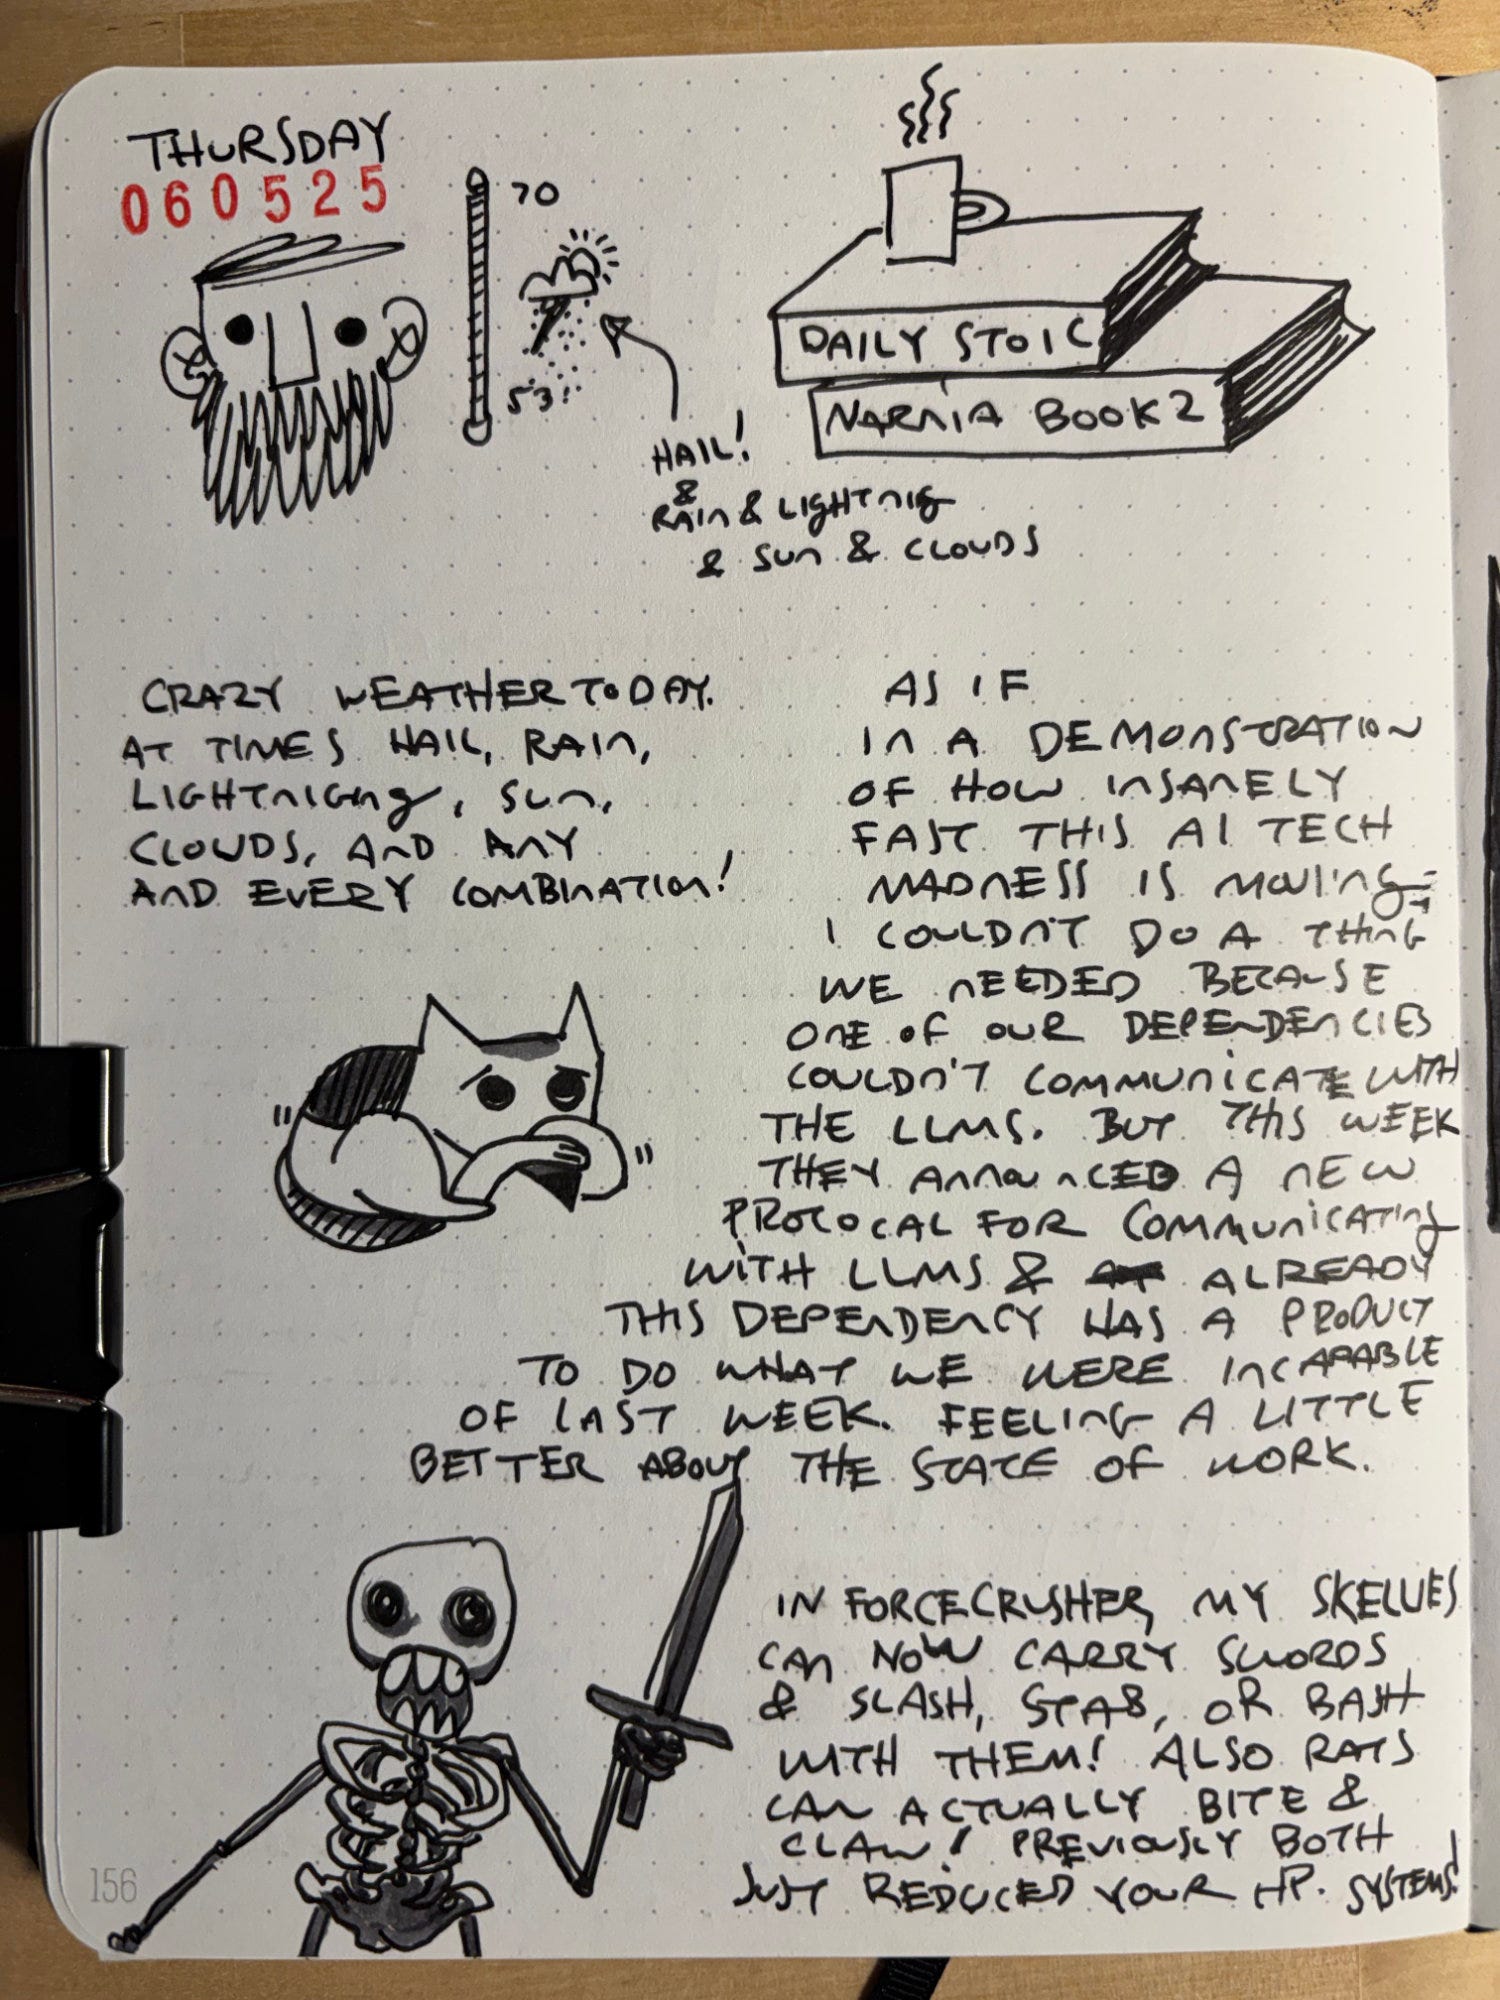 THURSDAY
060525
70
53!
HAIL!
&
RAIN & LIGHTNIG
& SUN & CLOUDS
DAILY STOIC
NARNIA BOOK 2
CRAZY WEATHER TODAY.
AT TIMES HAIL, RAIN,
LIGHTNIGNG, SUN,
CLOUDS, AND ANY
AND EVERY COMBINATION!
AS IF
IN A DEMONSTRATION
OF HOW INSANELY
FAST THIS AI TECH
MADNESS IS MOVING;
I COULDN'T DO A THING
WE NEEDED BECAUSE
ONE OF OUR DEPENDENCIES
COULDN'T COMMUNICATE WITH
THE LLMS. BUT THIS WEEK
THEY ANNOUNCED A NEW
PROTOCAL FOR COMMUNICATING
WITH LLMS & ALREADY
THIS DEPENDENCY HAS A PRODUCT
TO DO WHAT WE WERE INCAPABLE
OF LAST WEEK. FEELING A LITTLE
BETTER ABOUT THE STATE OF WORK.
IN FORCECRUSHER, MY SKELLIES
CAN NOW CARRY SWORDS
& SLASH, STAB, OR BASH
WITH THEM! ALSO RATS
CAN ACTUALLY BITE &
CLAW! PREVIOUSLY BOTH
JUST REDUCED YOUR HP. SYSTEMS!
156